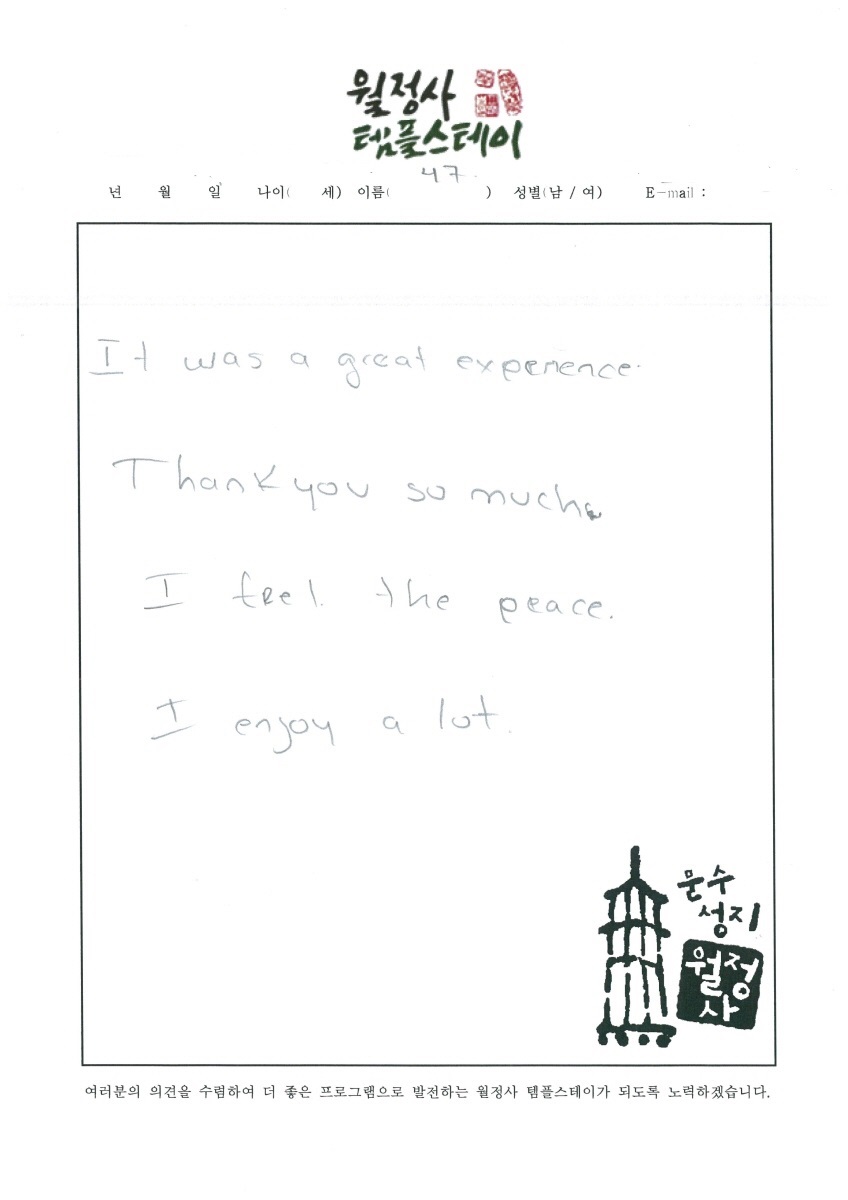 월정사
템플스테이
47
년 월 일 나이( 세) 이름( ) 성별(남 / 여) E-mail :
It was a great experience.
Thank you so much.
I feel the peace.
I enjoy a lot.
문수
성지
월정
사
여러분의 의견을 수렴하여 더 좋은 프로그램으로 발전하는 월정사 템플스테이가 되도록 노력하겠습니다.